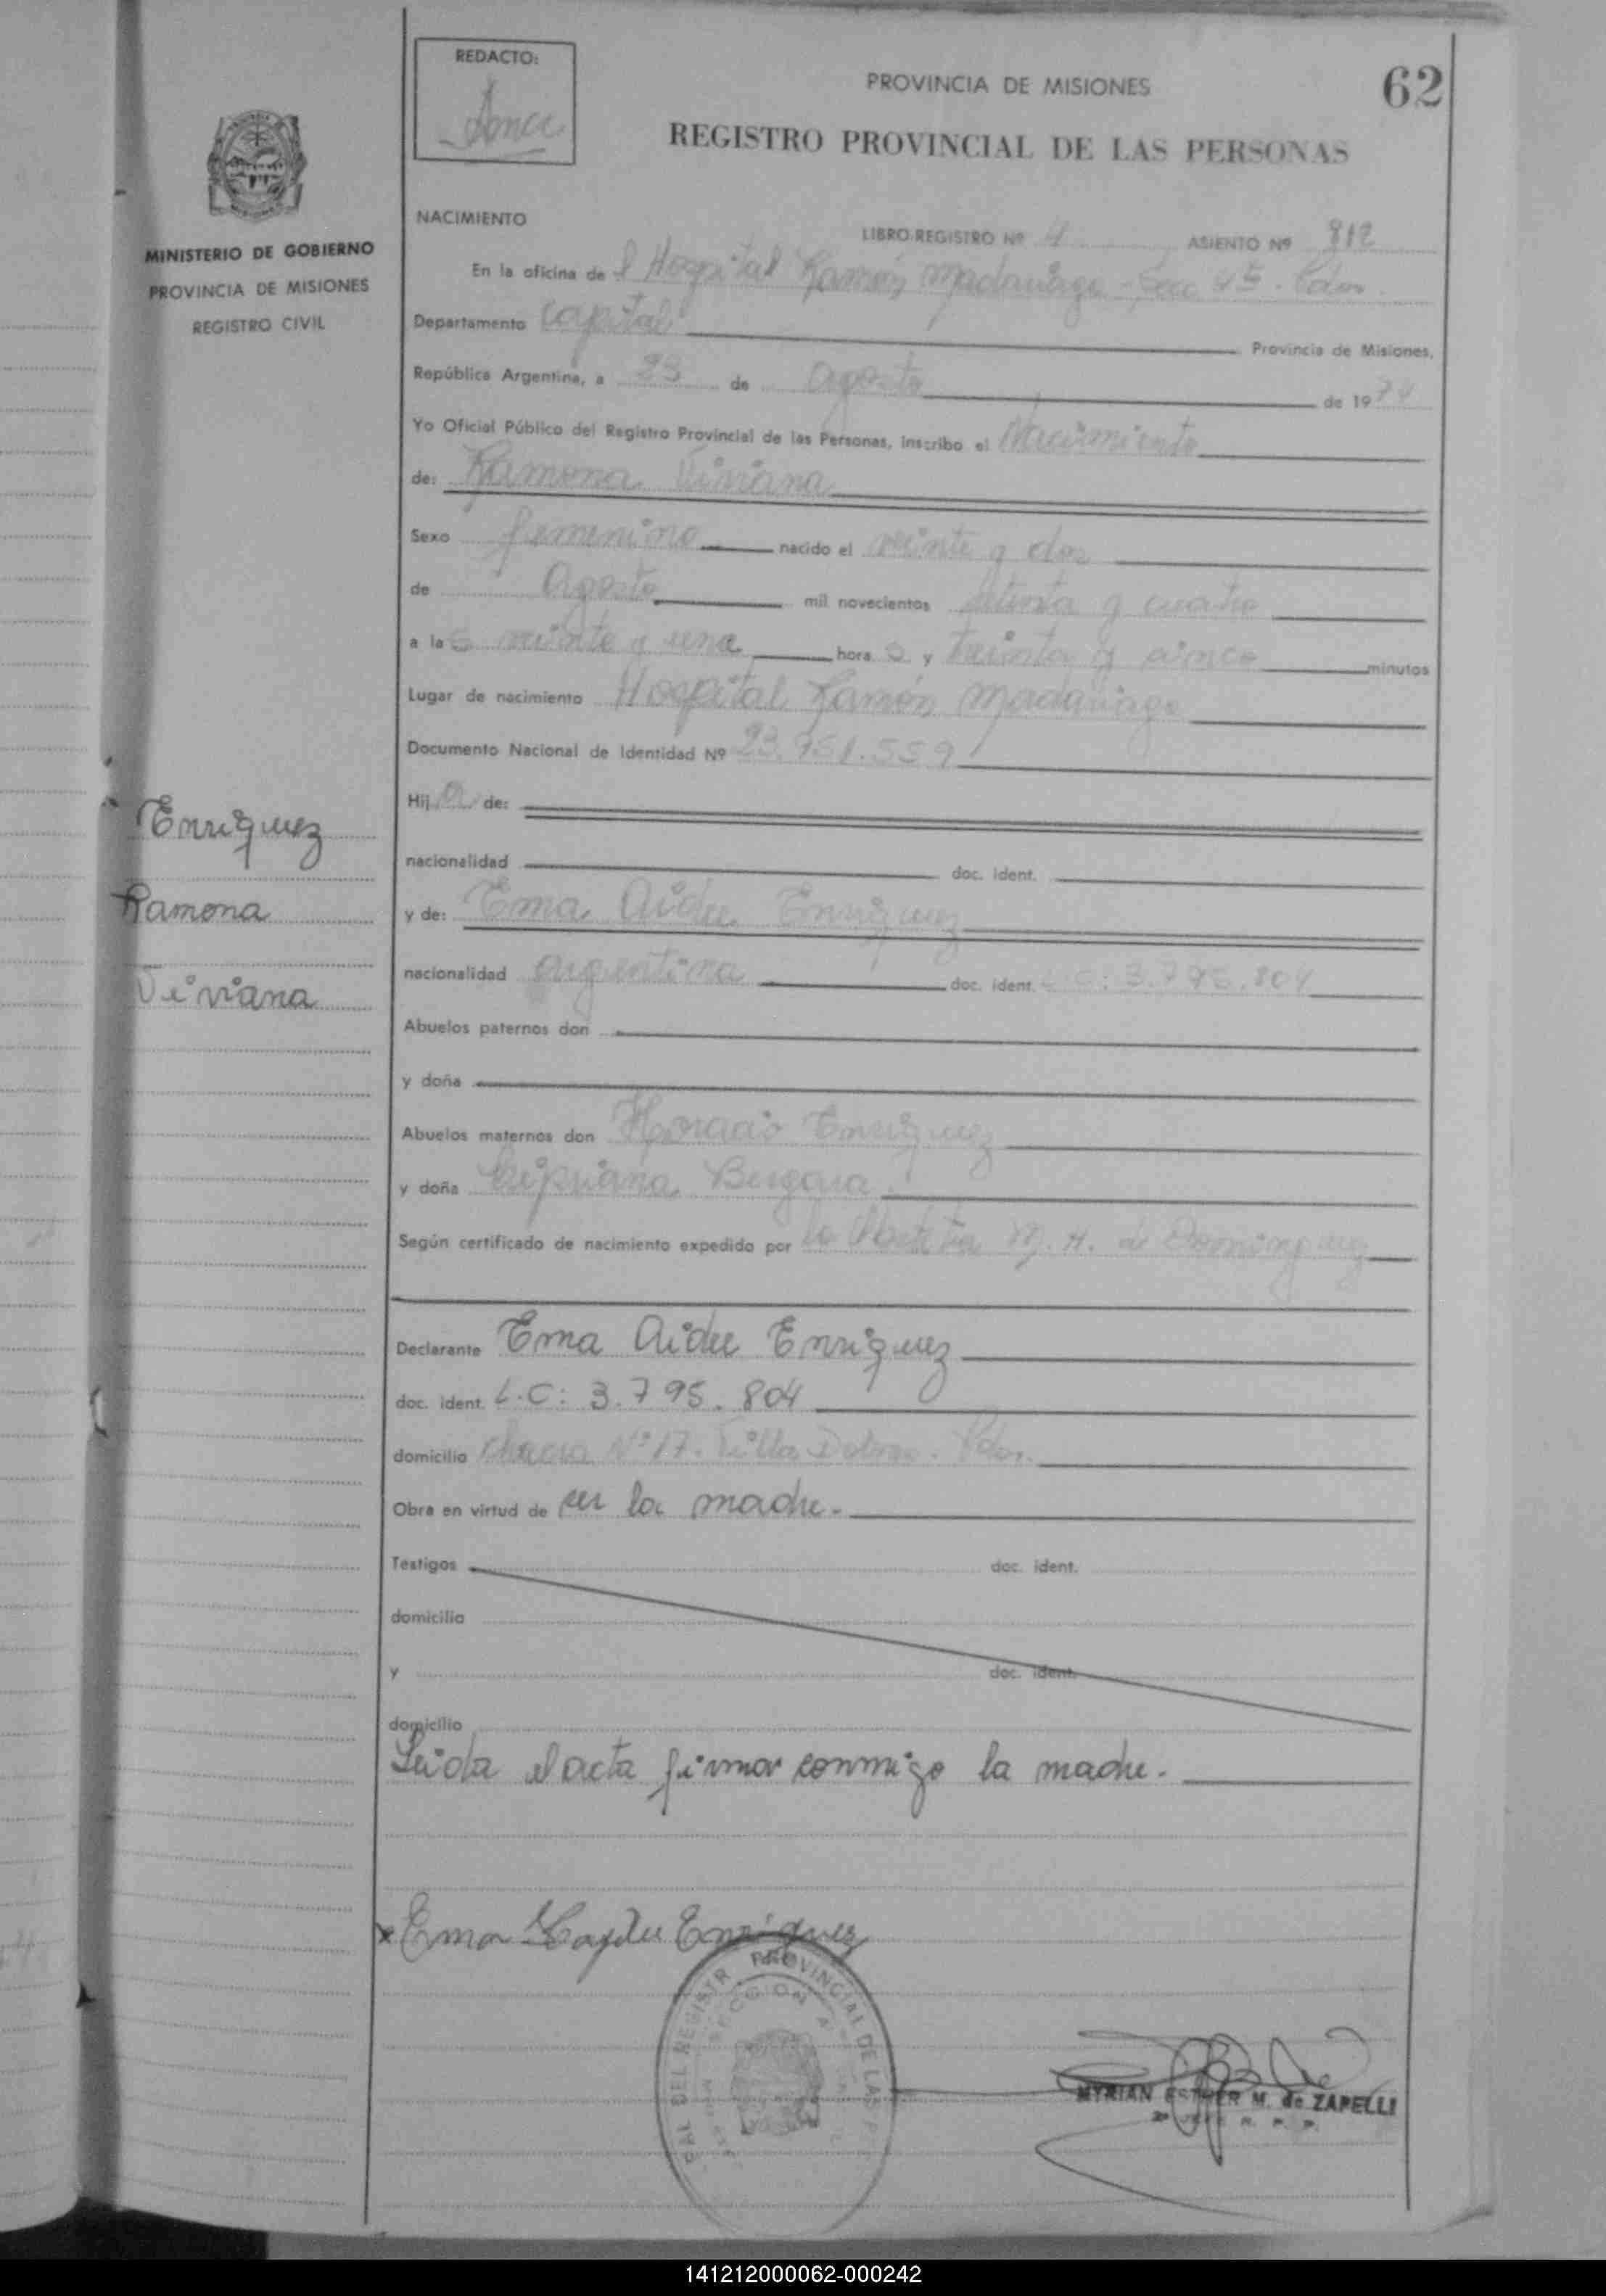 REDACTO:
PROVINCIA DE MISIONES
62
REGISTRO PROVINCIAL DE LAS PERSONAS
MINISTERIO DE GOBIERNO
PROVINCIA DE MISIONES
REGISTRO CIVIL
NACIMIENTO
LIBRO-REGISTRO Nº 4 ASIENTO Nº 812
En la oficina de l Hospital Ramón Madariaga - Secc 4ª. Pdas.
Departamento Capital Provincia de Misiones,
República Argentina, a 23 de agosto de 1974
Yo Oficial Público del Registro Provincial de las Personas, inscribo el Nacimiento
de: Ramona Viviana
Sexo femenino nacido el veinte y dos
de agosto mil novecientos setenta y cuatro
a las veinte y una horas y treinta y cinco minutos
Lugar de nacimiento Hospital Ramón Madariaga
Documento Nacional de Identidad Nº 23.951.559
Hija de:
nacionalidad doc. ident.
y de: Ema Aidee Enriquez
nacionalidad argentina doc. ident. L.C: 3.795.804
Abuelos paternos don
y doña
Abuelos maternos don Horacio Enriquez
y doña Cipriana Bergara
Según certificado de nacimiento expedido por la Obstetra M. H. de Dominguez
Enriquez
Ramona
Viviana
Declarante Ema Aidee Enriquez
doc. ident. L.C: 3.795.804
domicilio chacra Nº 17. Villa Dolores. Pdas.
Obra en virtud de ser la madre.
Testigos doc. ident.
domicilio
y doc. ident.
domicilio
Leida el acta firma conmigo la madre.
x Ema Haydee Enriquez
PROVINCIAL DE LAS
SECCION
MYRIAN ESTHER M. de ZAPELLI
2º JEFE R. P. P.
141212000062-000242